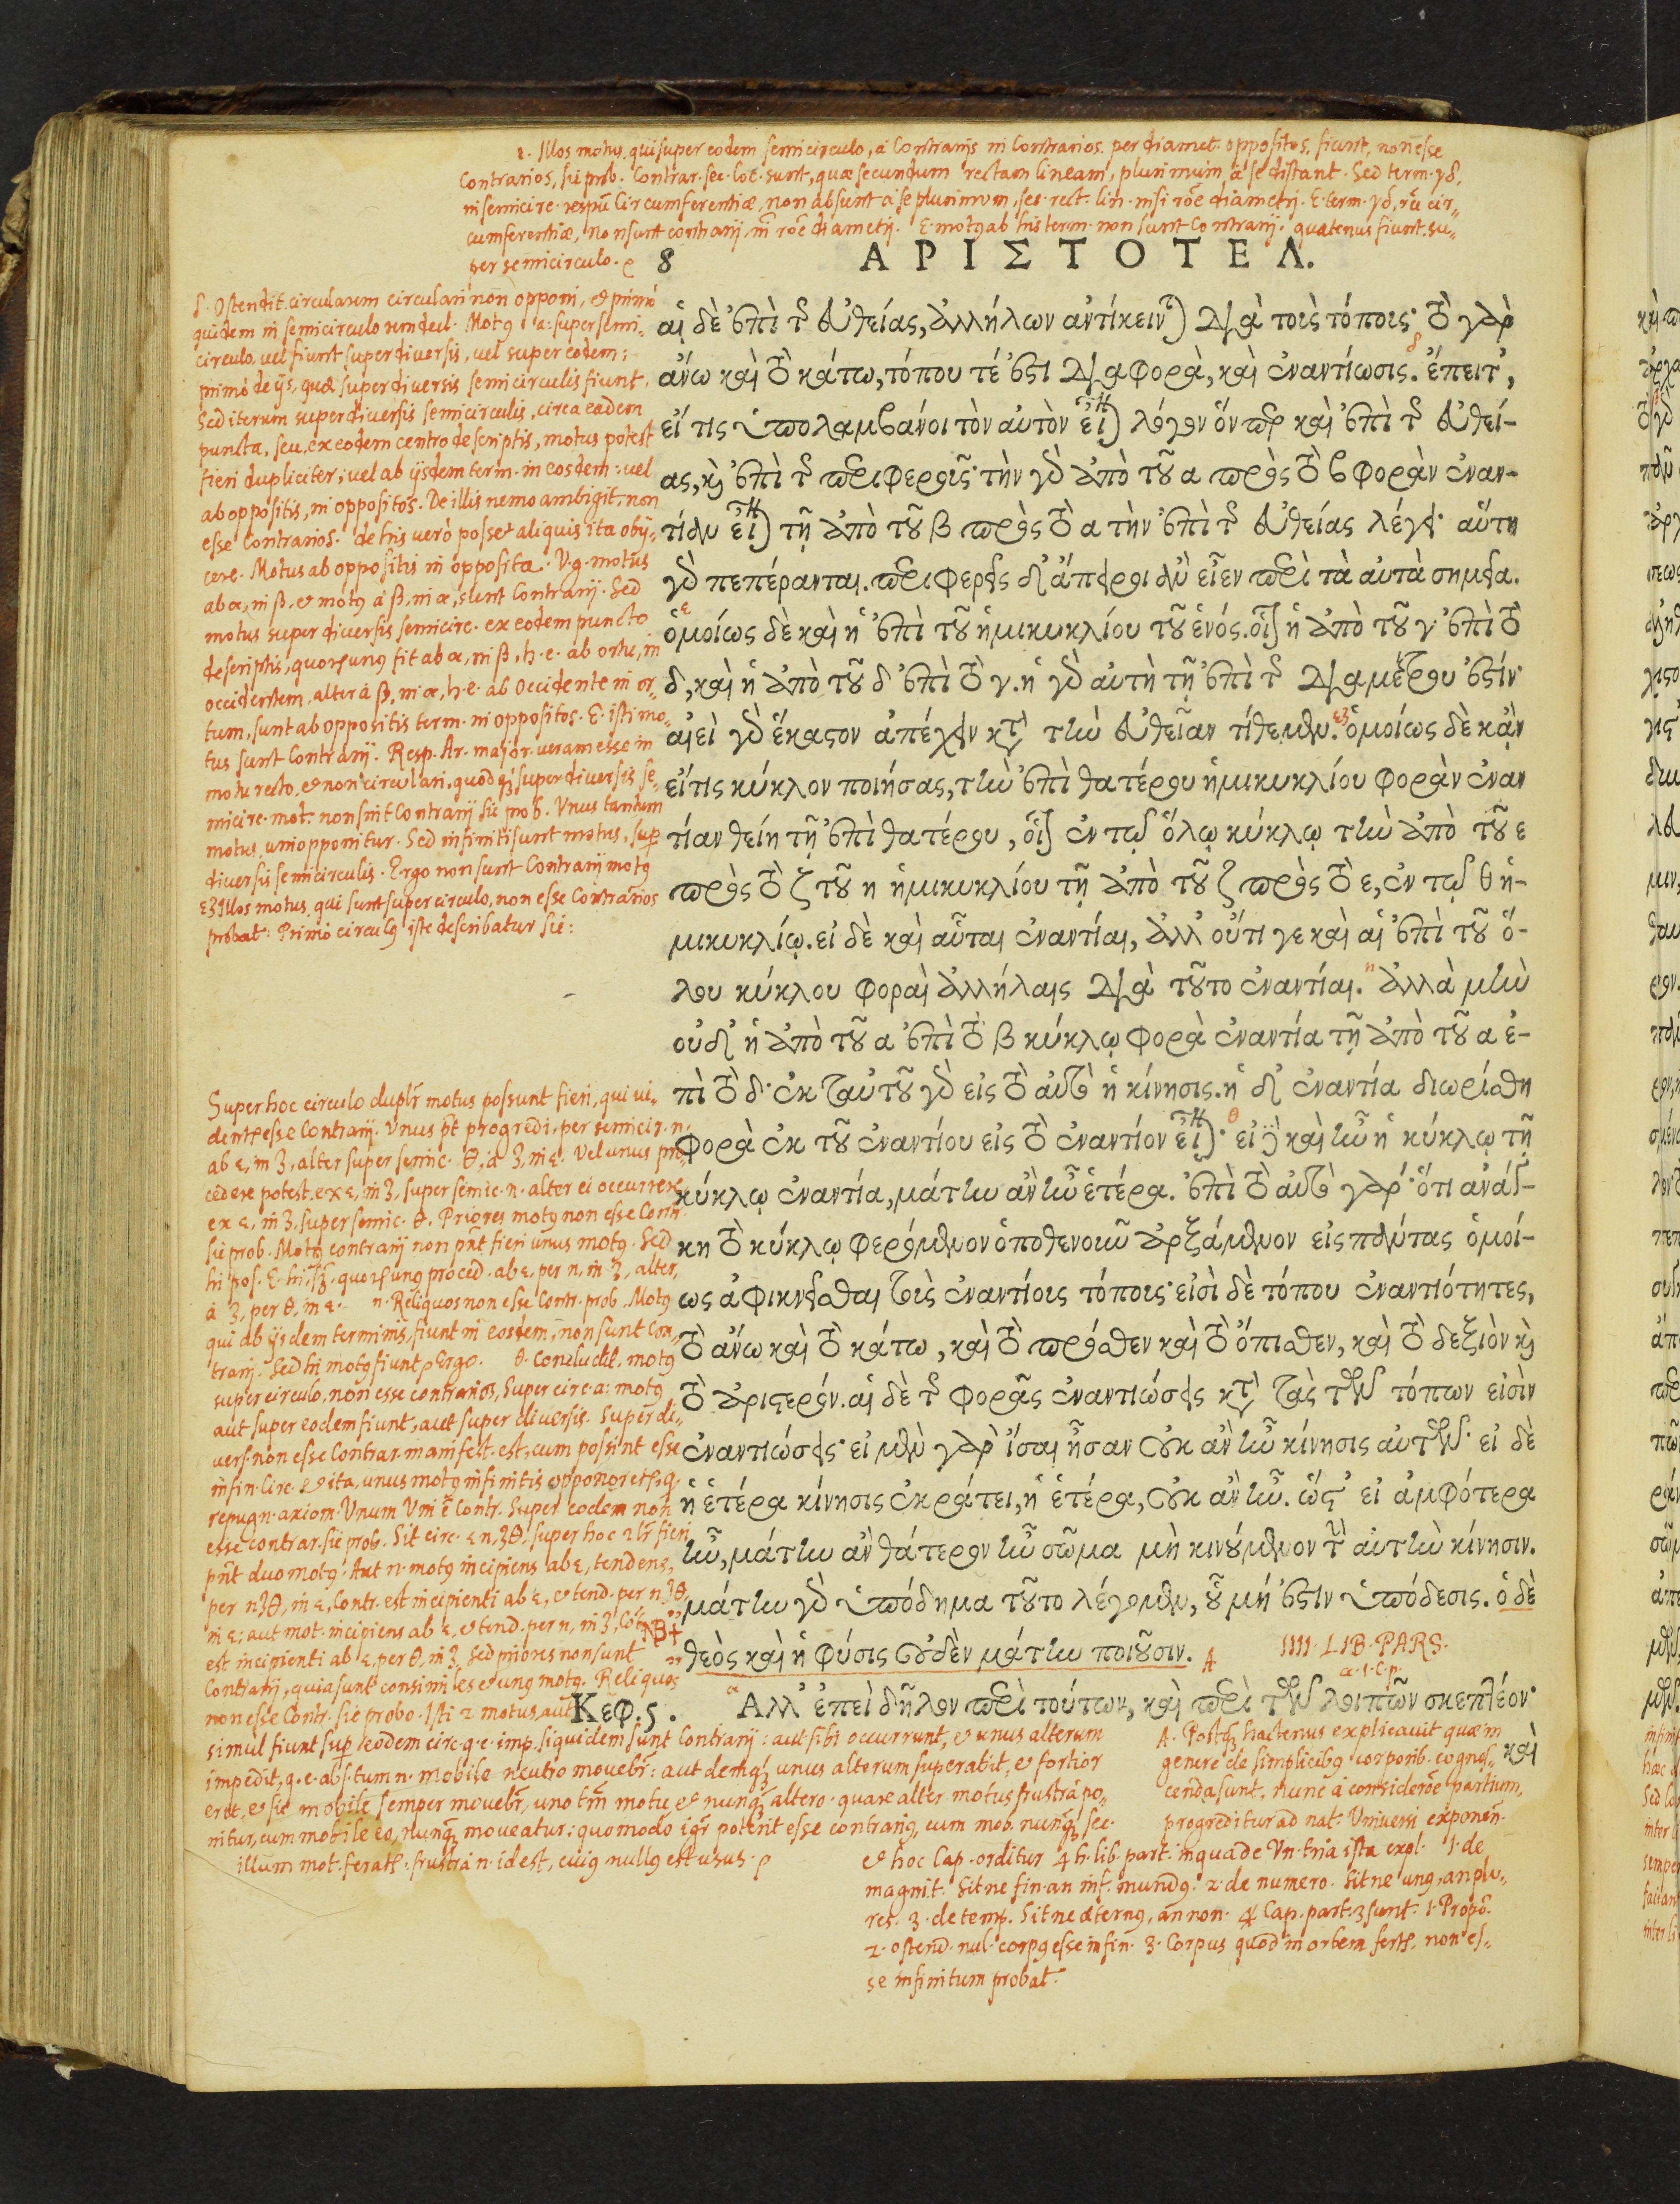 ε. Illos motus, qui super eodem semicirculo, a Contrarijs in Contrarios per diamet. oppositos, fiunt, non esse
Contrarios, sic prob. Contrar. sec. loc. sunt, quæ secundum rectam lineam, plurimum a se distant. Sed term. γδ,
in semicirc. respū Circumferentiæ, non absunt a se plurimum, sec. rect. lin. nisi rōe diametri. E. term. γδ, rū cir-
cumferentiæ, non sunt contrarij, nī rōe diametri. E. motꝰ ab his term. non sunt Contrarij. quatenus fiunt su-
per semicirculo.
8 ΑΡΙΣΤΟΤΕΛ.
αἱ δὲ ἐπὶ τῆς εὐθείας, ἀλλήλων ἀντίκεινται διὰ τοὺς τόπους· τὸ γὰρ
ἄνω καὶ τὸ κάτω, τόπου τέ ἐστι διαφορὰ, καὶ ἐναντίωσις. ἔπειτ',
εἴ τις ὑπολαμβάνοι τὸν αὐτὸν εἶναι λόγον ὅνπερ καὶ ἐπὶ τῆς εὐθεί-
ας, καὶ ἐπὶ τῆς περιφεροῦς· τὴν γὰρ ἀπὸ τοῦ α πρὸς τὸ β φορὰν ἐναν-
τίαν εἶναι τῇ ἀπὸ τοῦ β πρὸς τὸ α τὴν ἐπὶ τῆς εὐθείας λέγει· αὕτη
γὰρ πεπέρανται. περιφερεῖς δ' ἄπειροι ἂν εἶεν περὶ τὰ αὐτὰ σημεῖα.
ὁμοίως δὲ καὶ ἡ ἐπὶ τοῦ ἡμικυκλίου τοῦ ἑνός. οἷον ἡ ἀπὸ τοῦ γ ἐπὶ τὸ
δ, καὶ ἡ ἀπὸ τοῦ δ ἐπὶ τὸ γ. ἡ γὰρ αὐτὴ τῇ ἐπὶ τῆς διαμέτρου ἐστίν·
αἰεὶ γὰρ ἕκαστον ἀπέχειν κατὰ τὴν εὐθεῖαν τίθεμεν. ὁμοίως δὲ κἂν
εἴ τις κύκλον ποιήσας, τὴν ἐπὶ θατέρου ἡμικυκλίου φορὰν ἐναν
τίαν θείη τῇ ἐπὶ θατέρου, οἷον ἐν τῷ ὅλῳ κύκλῳ τὴν ἀπὸ τοῦ ε
πρὸς τὸ ζ τοῦ η ἡμικυκλίου τῇ ἀπὸ τοῦ ζ πρὸς τὸ ε, ἐν τῷ θ ἡ-
μικυκλίῳ. εἰ δὲ καὶ αὗται ἐναντίαι, ἀλλ' οὔτι γε καὶ αἱ ἐπὶ τοῦ ὅ-
λου κύκλου φοραὶ ἀλλήλαις διὰ τοῦτο ἐναντίαι. ἀλλὰ μὴν
οὐδ' ἡ ἀπὸ τοῦ α ἐπὶ τὸ β κύκλῳ φορὰ ἐναντία τῇ ἀπὸ τοῦ α ἐ-
πὶ τὸ δ· ἐκ ταὐτοῦ γὰρ εἰς τὸ αὐτὸ ἡ κίνησις. ἡ δ' ἐναντία διωρίσθη
φορὰ ἐκ τοῦ ἐναντίου εἰς τὸ ἐναντίον εἶναι· εἰ δὲ καὶ ἦν ἡ κύκλῳ τῇ
κύκλῳ ἐναντία, μάτην ἂν ἦν ἑτέρα. ἐπὶ τὸ αὐτὸ γάρ· ὅτι ἀνάγ-
κη τὸ κύκλῳ φερόμενον ὁποθενοῦν ἀρξάμενον εἰς πάντας ὁμοί-
ως ἀφικνεῖσθαι τοῖς ἐναντίοις τόποις· εἰσὶ δὲ τόπου ἐναντιότητες,
τὸ ἄνω καὶ τὸ κάτω, καὶ τὸ πρόσθεν καὶ τὸ ὄπισθεν, καὶ τὸ δεξιὸν καὶ
τὸ ἀριστερόν. αἱ δὲ τῆς φορᾶς ἐναντιώσεις κατὰ τὰς τῶν τόπων εἰσὶν
ἐναντιώσεις· εἰ μὲν γὰρ ἴσαι ἦσαν οὐκ ἂν ἦν κίνησις αὐτῶν· εἰ δὲ
ἡ ἑτέρα κίνησις ἐκράτει, ἡ ἑτέρα, οὐκ ἂν ἦν. ὥστ' εἰ ἀμφότερα
ἦν, μάτην ἂν θάτερον ἦν σῶμα μὴ κινούμενον τὴν αὑτὴν κίνησιν.
μάτην γὰρ ὑπόδημα τοῦτο λέγομεν, οὗ μή ἐστιν ὑπόδεσις. ὁ δὲ
θεὸς καὶ ἡ φύσις οὐδὲν μάτην ποιοῦσιν. A IIII. LIB. PARS.
α. 1. C. p.
Κεφ. ϛ. Αλλ' ἐπεὶ δῆλον περὶ τούτων, καὶ περὶ τῶν λοιπῶν σκεπτέον·
καὶ
δ. Ostendit circularem circulari non opponi, et primò
quidem in semicirculo Motꝰ a: super semi-
circulo, vel fiunt super diversis, vel super eodem:
primò de ijs, quæ super diversis semicirculis fiunt.
Sed iterum super diversis semicirculis, circa eadem
puncta, seu, ex eodem centro descriptis, motus potest
fieri dupliciter; vel ab ijsdem term. in eosdem: vel
ab oppositis, in oppositos. De illis nemo ambigit, non
esse Contrarios. de his verò posset aliquis ita obij-
cere. Motus ab oppositis in opposita. V.g. motus
ab α, in β, et motꝰ a β, in α, sunt Contrarij. Sed
motus super diversis semicirc. ex eodem puncto
descriptis, quorum unus fit ab α, in β, h.e. ab ortu, in
occidentem, alter à β, in α, h.e. ab Occidente in or-
tum, sunt ab oppositis term. in oppositos. E. isti mo-
tus sunt Contrarij. Resp. Ar. major. veram esse in
motu recto, et non circulari, quòd super diversis se-
micirc. mot. non sint Contrarij sic prob. Unus tantum
motus uni opponitur. Sed infiniti sunt motus, sup
diversis semicirculis. Ergo non sunt Contrarij motꝰ
εζ Illos motus, qui sunt super circulo, non esse Contrarios
probat: Primò circulꝰ iste describatur sic:
Super hoc circulo duplr motus possunt fieri, qui vi-
dentr esse Contrarij. Unus pt progredi, per semicir. η.
ab ε, in ζ, alter super semic. θ, à ζ, in ε. Vel unus pro-
cedere potest. ex ε, in ζ, super semic. η. alter ei occurrere
ex ε, in ζ, super semic. θ. Priores motꝰ non esse Contr.
sic prob. Motꝰ contrarij non pnt fieri unus motꝰ. Sed
hi pos. E. quorum unꝰ proced. ab ε, per η, in ζ, alter,
à ζ, per θ, in ε. η. Reliquos non esse Contr. prob. Motꝰ
qui ab ijsdem terminis, fiunt in eosdem, non sunt Con-
trarij. Sed hi motꝰ fiunt Ergo. θ. Concludit, motꝰ
super circulo, non esse contrarios, Super circ. a: motꝰ
aut super eodem fiunt, aut super diversis. Super di-
vers. non esse Contrar. manifest. est, cum possint esse
infin. Circ. et ita, unus motꝰ infinitis opponeretr, q.
repugn. axiom. Unum Uni ē Contr. Super eodem non
esse contrar. sic prob. Sit circ. ε η ζ θ, super hoc fieri
pnt duo motꝰ: Aut n. motꝰ incipiens ab ε, tendens,
per η ζ θ, in ε, Contr. est incipienti ab ε, et tend. per η ζ θ,
in ε; aut mot. incipiens ab ε, et tend. per η, in ζ, Contr.
est incipienti ab ε, per θ, in ζ. Sed priores non sunt
Contrarij, quia sunt consimiles et unꝰ motꝰ. Reliquos
non esse Contr. sic probo. Isti 2 motus, aut
NB+
simul fiunt sup eodem circ. q.e. imp. siquidem sunt Contrarij: aut sibi occurrunt, et unus alterum
impedit, q.e. abs. tum n. mobile neutro movebr: aut demꝗ unus alterum superabit, et fortior
erit, et sic mobile semper movebr, uno tm motu et nunꝗ altero. quare alter motus frustrà po-
nitur, cum mobile eo, nunꝗ moveatur: quomodo igr poterit esse contrariꝰ, cum mob. nunꝗ sec.
illum mot. feratr. frustrà n. id est, cuiꝰ nullꝰ est usus.
A. Postꝗ hactenus explicavit quæ in
genere de simplicibꝰ corporib. cognos-
cenda sunt, nunc à considerōe partium,
progreditur ad nat. Universi exponen.
et hoc Cap. orditur 4 h. lib. part. in qua de Un. tria ista expl. 1. de
magnit. Sitne fin. an inf. mundꝰ. 2. de numero. Sitne unꝰ, an plu-
res. 3. de temp. Sitne æternꝰ, an non. 4 Cap. part. 3 sunt. 1. Propō.
2. ostend. nul. corpꝰ esse infin. 3. Corpus quod in orbem fertr, non es-
se infinitum probat.